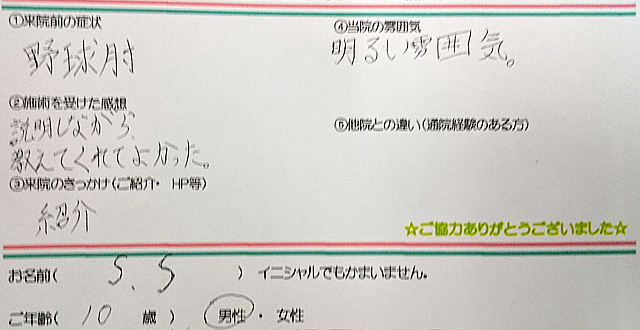 ①来院前の症状
野球肘
②施術を受けた感想
説明しながら、
教えてくれてよかった。
③来院のきっかけ(ご紹介・ HP等)
紹介
④当院の雰囲気
明るい雰囲気。
⑤他院との違い(通院経験のある方)
☆ご協力ありがとうございました☆
お名前( S.S ) イニシャルでもかまいません。
ご年齢( 10 歳 ) 男性・女性